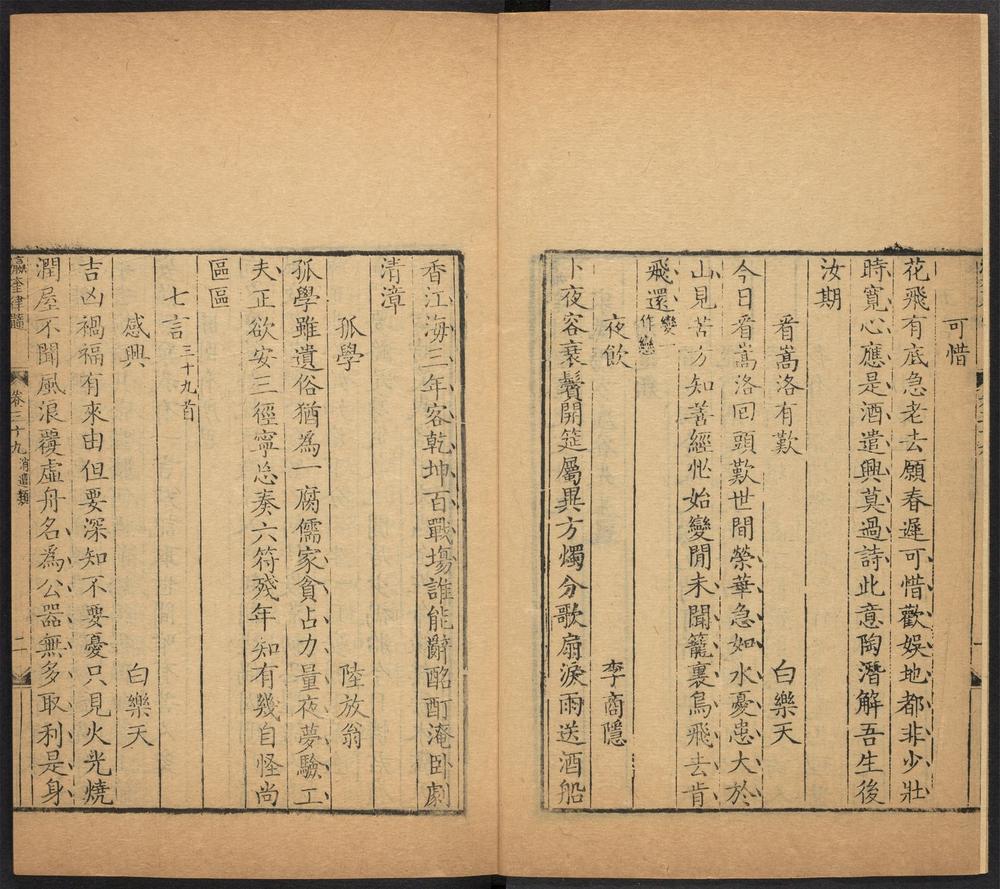 可惜
花飛有底急老去願春遲可惜歡娛地都非少壯
時寬心應是酒遣興莫過詩此意陶潛解吾生後
汝期
看嵩洛有歎
白樂天
今日看嵩洛回頭歎世間榮華急如水憂患大於
山見苦方知善經忙始變閒未聞籠裏鳥飛去肯
飛還變一作戀
夜飲
李商隱
卜夜容衰鬢開筵屬異方燭分歌扇淚雨送酒船
香江海三年客乾坤百戰場誰能辭酩酊淹臥劇
清漳
孤學
陸放翁
孤學雖遺俗猶為一腐儒家貧占力量夜夢驗工
夫正欲安三徑寧忘奏六符殘年知有幾自怪尚
區區
七言三十九首
感興
白樂天
吉凶禍福有來由但要深知不要憂只見火光燒
潤屋不聞風浪覆虛舟名為公器無多取利是身
瀛奎律髓
卷三十九消遣類
二